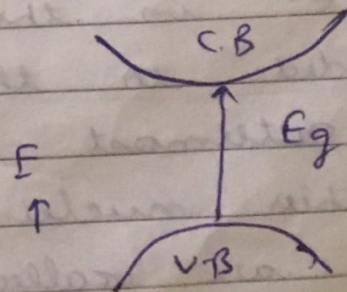 C.B
Eg
E
↑
V.B